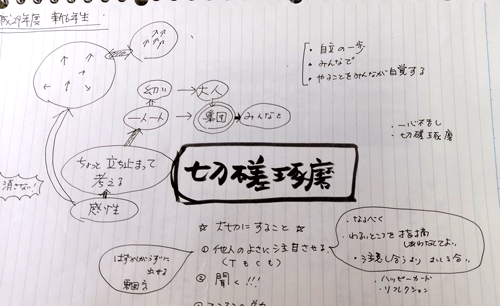 平成29年度 新6年生
・自立の一歩
・みんなで
・やることをみんなが自覚する
幼い → 大人
一人一人 → 集団 → みんなと
・一心不乱
・切磋琢磨
ちょっと立ち止まって
考える
消さない!
感性
切磋琢磨
☆ 大切にすること ☆
①他人のよさに注目させる
(TもCも)
② 聞く!!!
はずかしがらずに
出せる
集団
・なるべく
・わるいところを指摘
しあわなくてよい。
・注意し合うより
ハッピーカード
・リフレクション